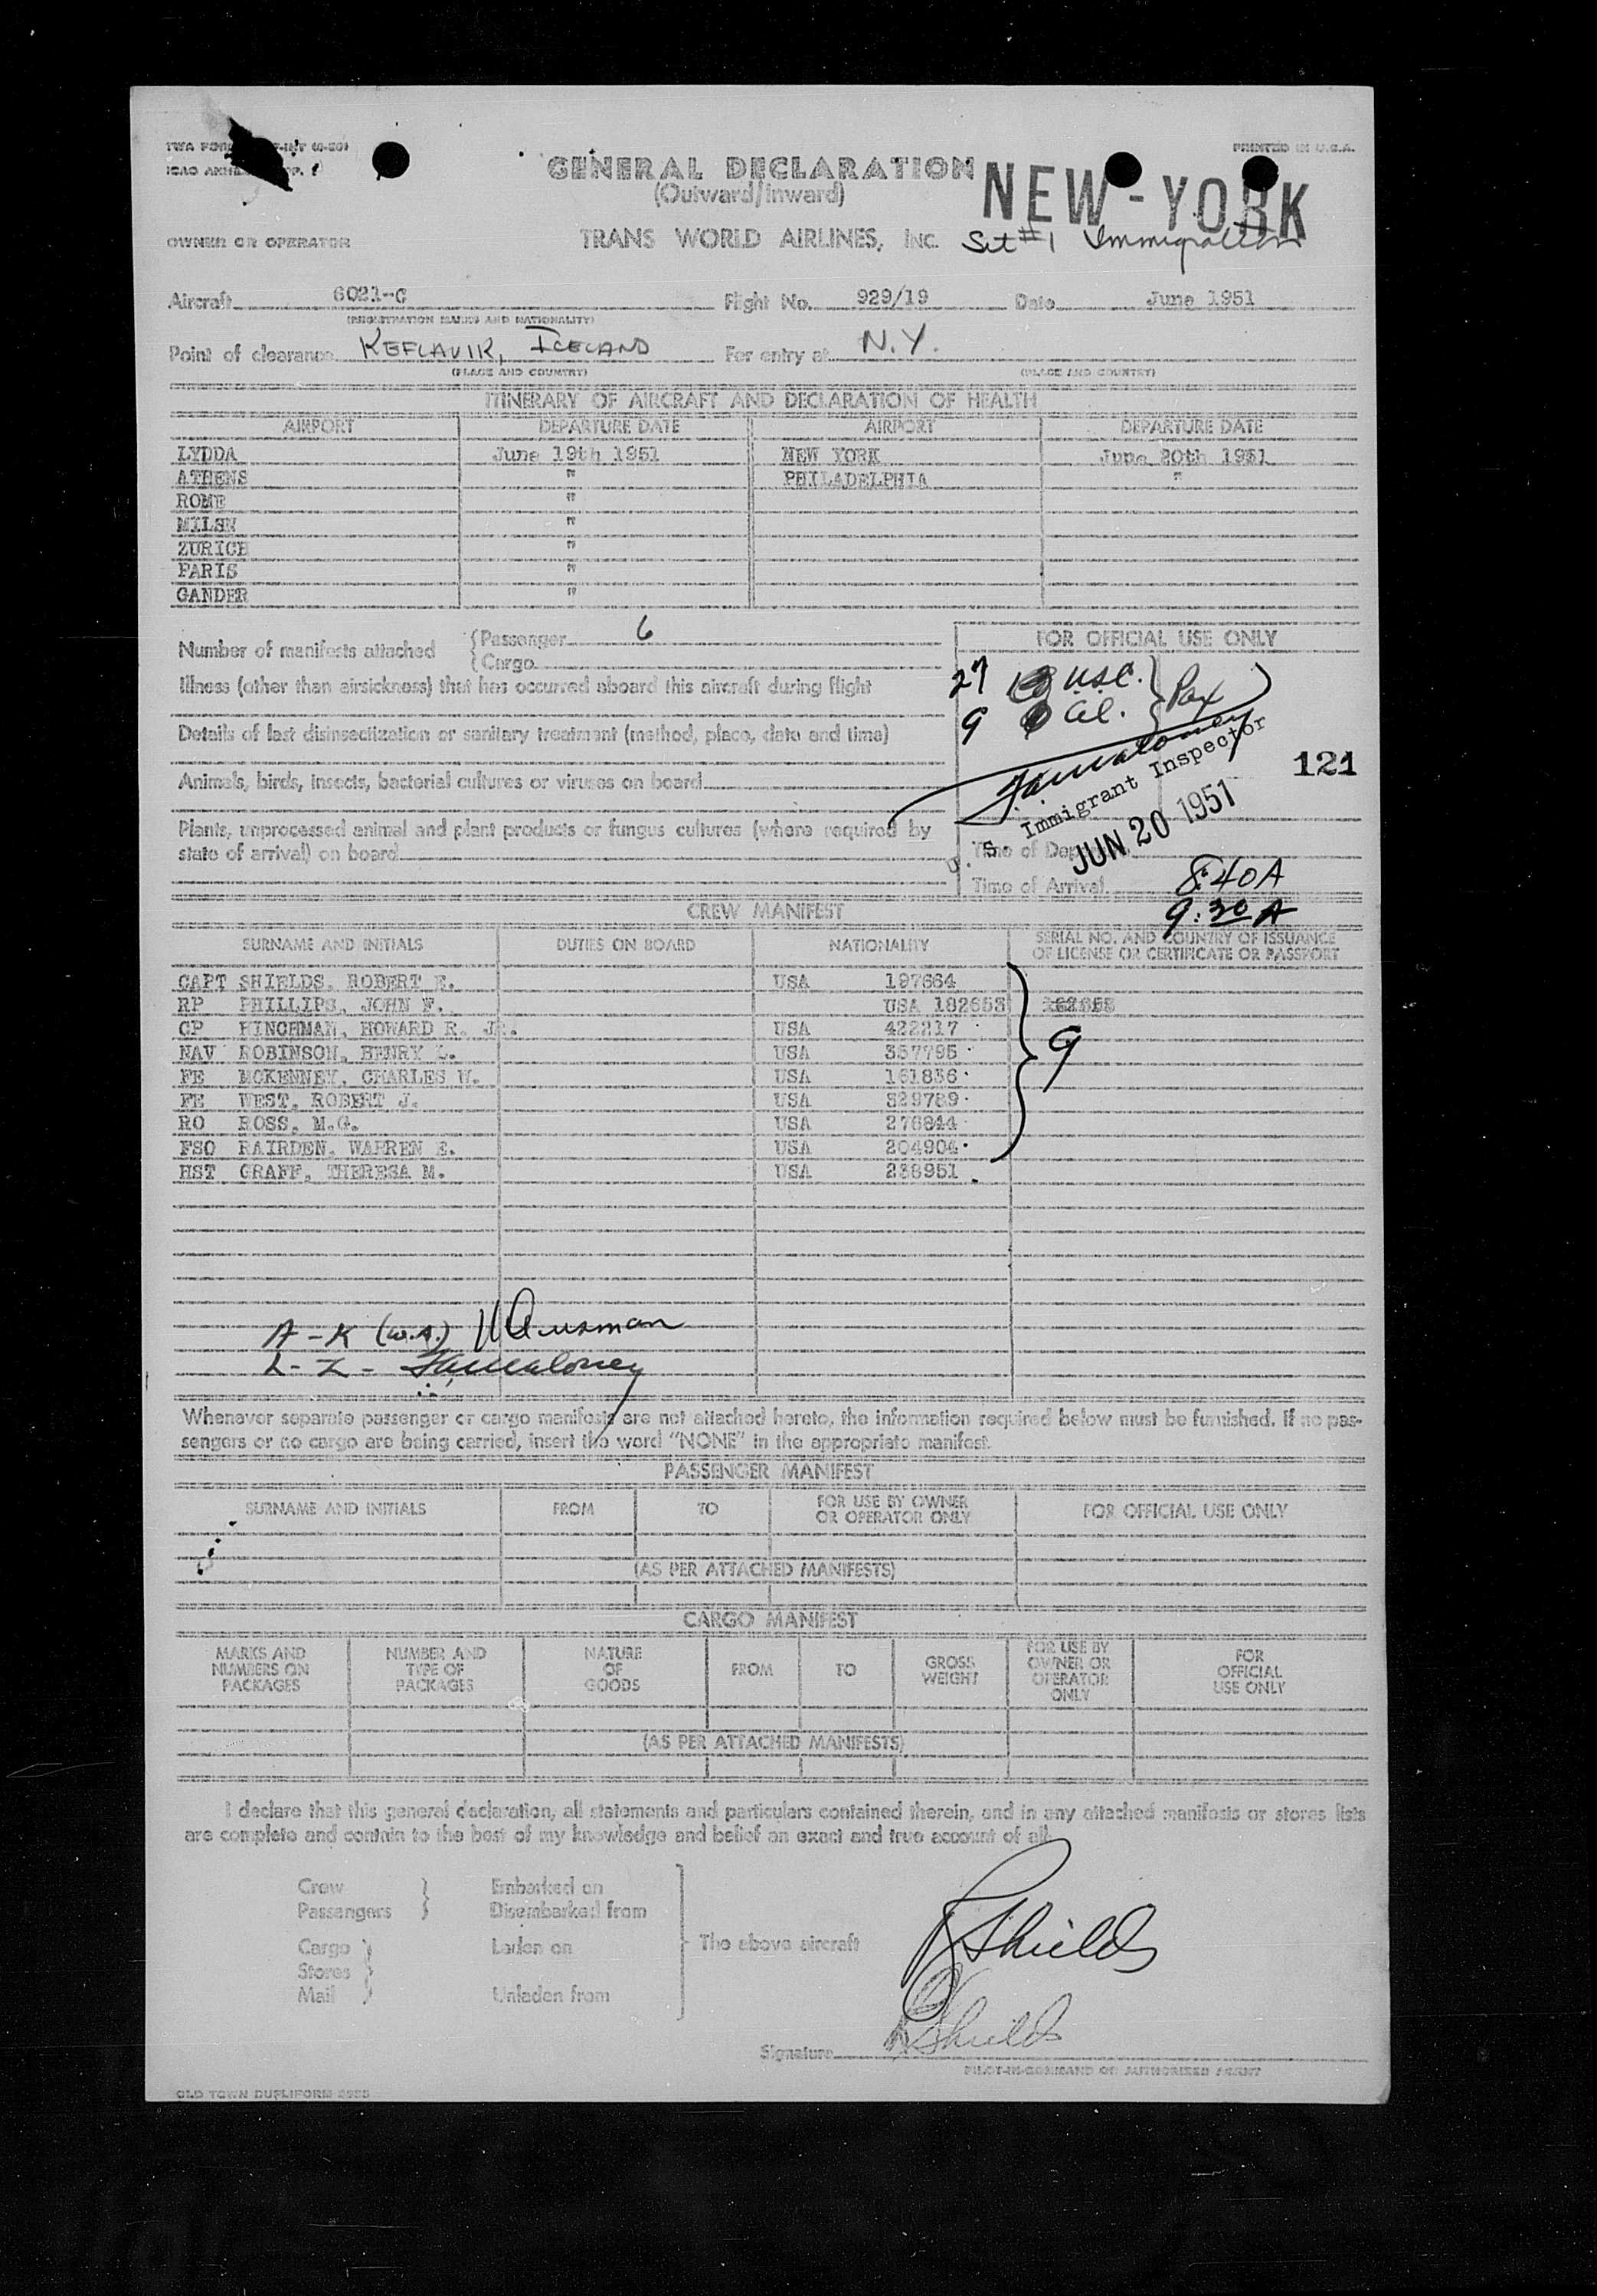 PRINTED IN U.S.A.
GENERAL DECLARATION
(Outward/Inward)
NEW-YORK
OWNER OR OPERATOR
TRANS WORLD AIRLINES, INC.
Set #1 Immigration
Aircraft 6021-C Flight No. 929/19 Date June 1951
(REGISTRATION MARKS AND NATIONALITY)
Point of clearance KEFLAVIK, ICELAND For entry at N.Y.
(PLACE AND COUNTRY) (PLACE AND COUNTRY)
ITINERARY OF AIRCRAFT AND DECLARATION OF HEALTH
AIRPORT DEPARTURE DATE AIRPORT DEPARTURE DATE
LYDDA June 19th 1951 NEW YORK June 20th 1951
ATHENS " PHILADELPHIA "
ROME "
MILAN "
ZURICH "
PARIS "
GANDER "
Number of manifests attached
Passenger 6
Cargo
Illness (other than airsickness) that has occurred aboard this aircraft during flight
Details of last disinsectization or sanitary treatment (method, place, date and time)
Animals, birds, insects, bacterial cultures or viruses on board
Plants, unprocessed animal and plant products or fungus cultures (where required by
state of arrival) on board
FOR OFFICIAL USE ONLY
27 USC.
9 al. Pax
U. S. Immigrant Inspector
JUN 20 1951
121
Time of Departure
Time of Arrival 8:40A
9:30 A
CREW MANIFEST
SURNAME AND INITIALS DUTIES ON BOARD NATIONALITY SERIAL NO. AND COUNTRY OF ISSUANCE
OF LICENSE OR CERTIFICATE OR PASSPORT
CAPT SHIELDS, ROBERT E. USA 197664
RP PHILLIPS, JOHN F. USA 182653
CP HINCHMAN, HOWARD R. JR. USA 422217
NAV ROBINSON, HENRY L. USA 357795
FE MCKENNEY, CHARLES W. USA 161836
FE WEST, ROBERT J. USA 329789
RO ROSS, M.G. USA 276844
FSO RAIRDEN, WARREN E. USA 204904
HST GRAFF, THERESA M. USA 238951
9
A-K (W.A.)
L-Z -
Whenever separate passenger or cargo manifests are not attached hereto, the information required below must be furnished. If no pas-
sengers or no cargo are being carried, insert the word "NONE" in the appropriate manifest.
PASSENGER MANIFEST
SURNAME AND INITIALS FROM TO FOR USE BY OWNER OR OPERATOR ONLY FOR OFFICIAL USE ONLY
(AS PER ATTACHED MANIFESTS)
CARGO MANIFEST
MARKS AND NUMBERS ON PACKAGES NUMBER AND TYPE OF PACKAGES NATURE OF GOODS FROM TO GROSS WEIGHT FOR USE BY OWNER OR OPERATOR ONLY FOR OFFICIAL USE ONLY
(AS PER ATTACHED MANIFESTS)
I declare that this general declaration, all statements and particulars contained therein, and in any attached manifests or stores lists
are complete and contain to the best of my knowledge and belief an exact and true account of all
Crew Embarked on
Passengers Disembarked from
Cargo Laden on The above aircraft
Stores
Mail Unladen from
R Shields
R Shields
Signature
PILOT-IN-COMMAND OR AUTHORIZED AGENT
OLD TOWN DUPLIFORM